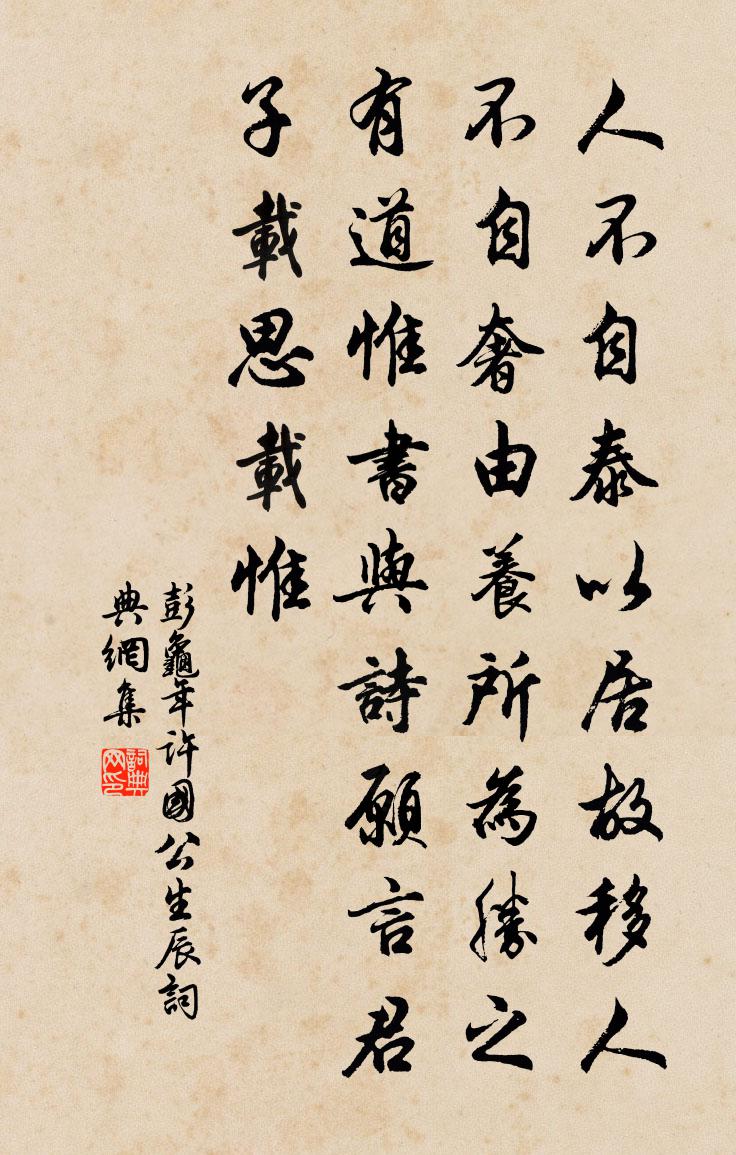 人不自泰以居故移人
不自奢由養所為勝之
有道惟書與詩願言君
子載思載惟
彭龜年許國公生辰詞
典網集
詞典
网印